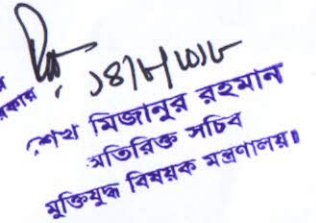 ১৪/৮/২০১৮
শেখ মিজানুর রহমান
অতিরিক্ত সচিব
মুক্তিযুদ্ধ বিষয়ক মন্ত্রণালয়।